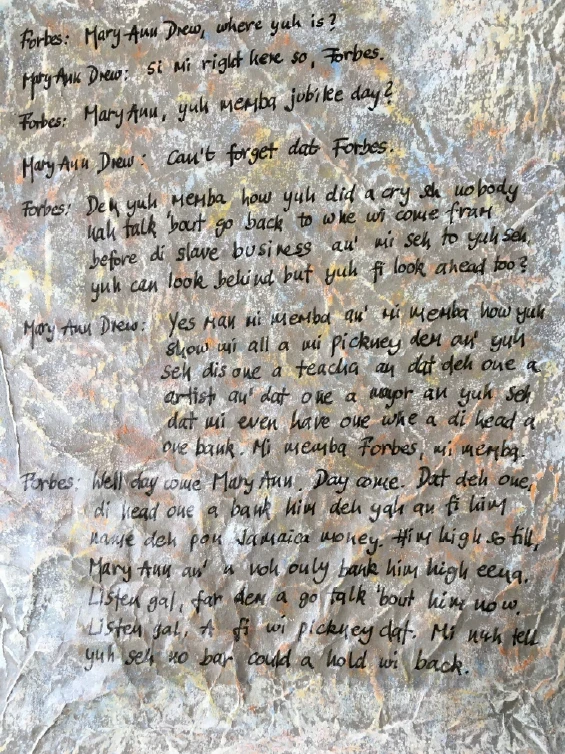 Forbes: Mary-Ann Drew, where yuh is?
Mary-Ann Drew: Si mi right here so, Forbes.
Forbes: Mary Ann, yuh memba jubilee day?
Mary Ann Drew: Can't forget dat Forbes.
Forbes: Den yuh memba how yuh did a cry seh nobody
nah talk 'bout go back to whe wi come fram
before di slave business an' mi seh to yuh seh,
yuh can look behind but yuh fi look ahead too?
Mary Ann Drew: Yes man mi memba an' mi memba how yuh
show mi all a mi pickney dem an' yuh
seh dis one a teacha an dat deh one a
artist an' dat one a mayor an yuh seh
dat mi even have one whe a di head a
one bank. Mi memba Forbes, mi memba.
Forbes: Well day come Mary Ann. Day come. Dat deh one,
di head one a bank him deh yah an fi him
name deh pon Jamaica money. Him high so till,
Mary Ann an' a noh only bank him high eena.
Listen gal, far dem a go talk 'bout him now.
Listen gal. A fi wi pickney dat. Mi nuh tell
yuh seh no bar could a hold wi back.